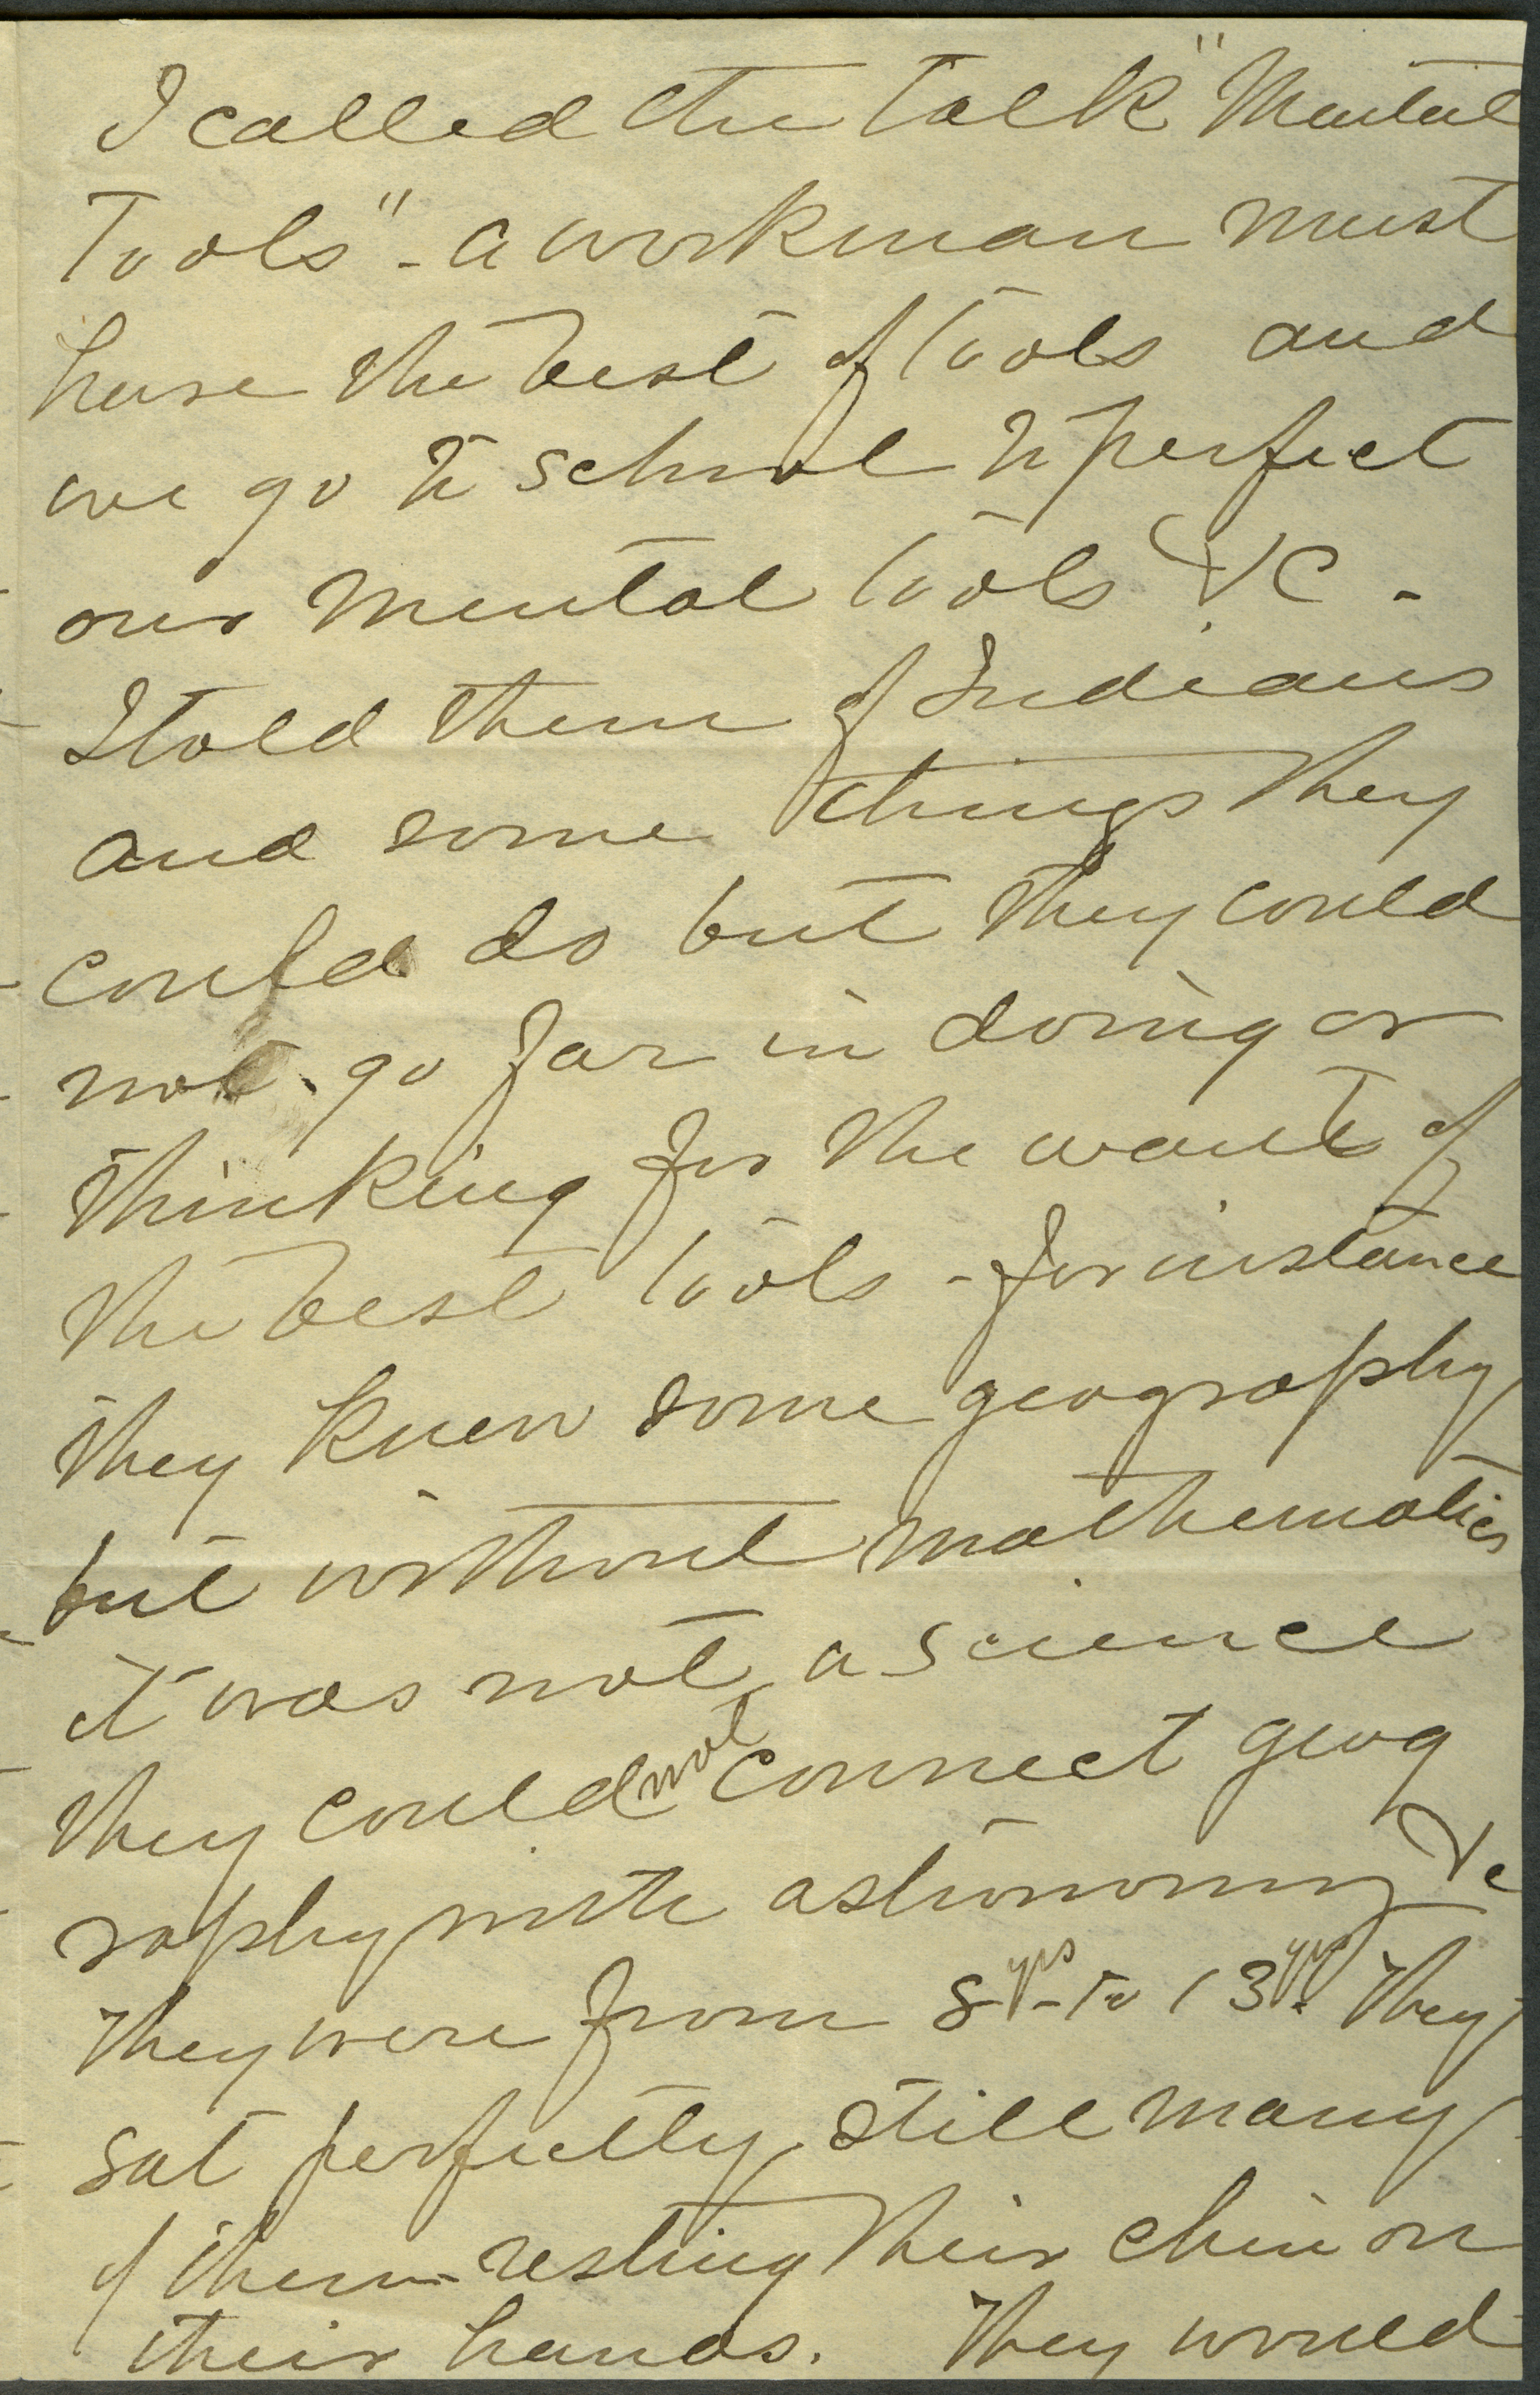 I called the talk "Mental
Tools" - a workman must
have the best of tools and
we go to school to perfect
our mental tools &c -
I told them of Indians
and some things they
could do but they could
not go far in doing or
thinking for the want of
the best tools - for instance
they knew some geography
but without mathematics
it was not a science
they could not connect geog
raphy with astronomy &c
They were from 8 yrs - to 13 yrs. They
sat perfectly still many
of them - resting their chin on
their hands. They would